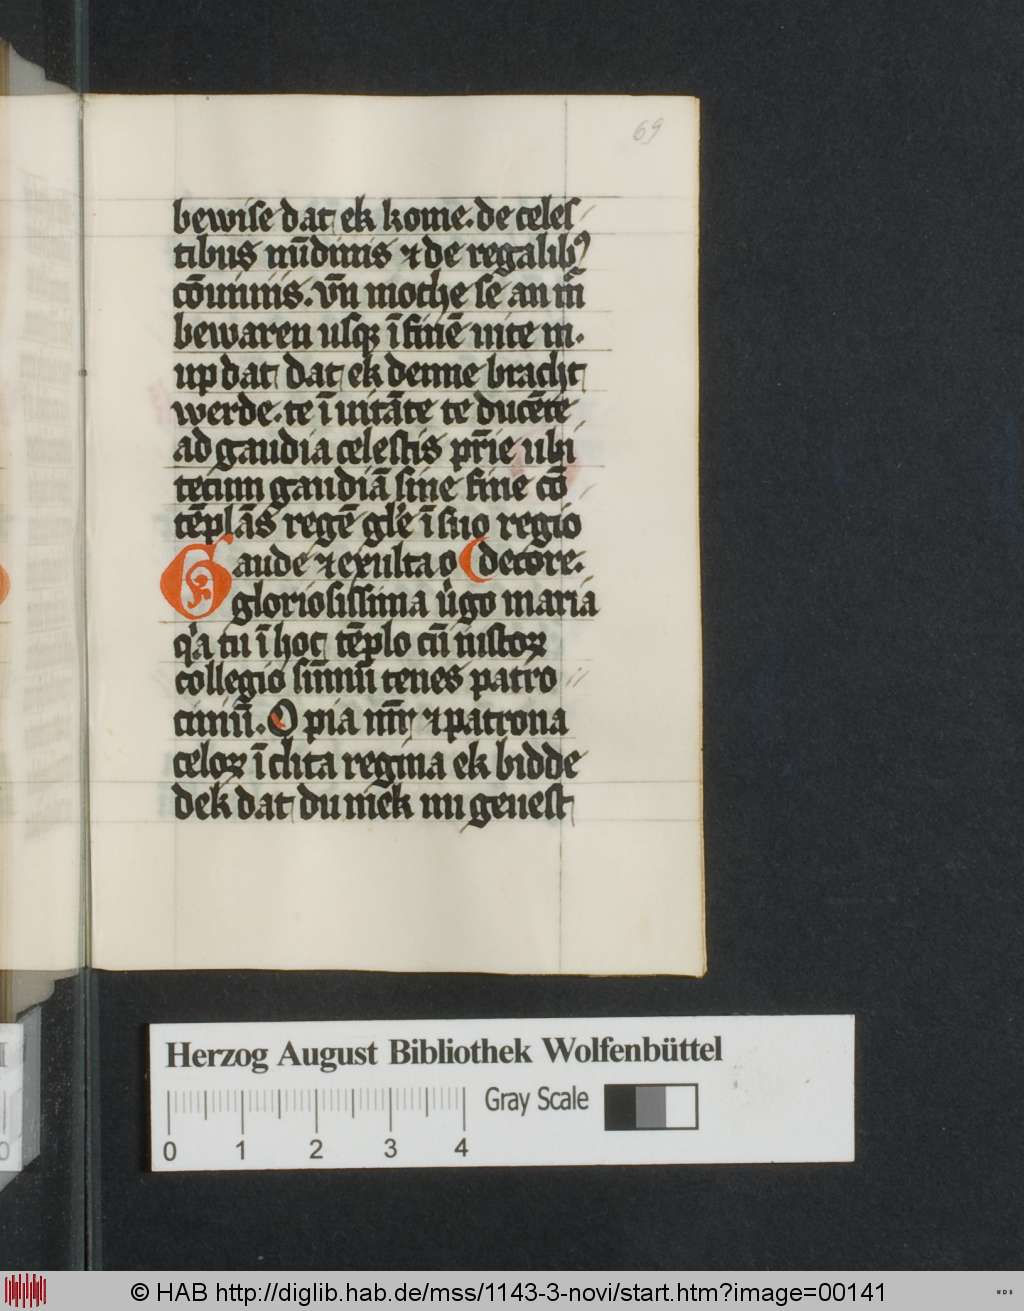 69
bewise dat ek kome. de celes
tibus nūdinis ⁊ de regalibꝫ
cōiuiuiis. vn̄ moche se an m̄
bewaren usqꝫ ī finē uite m.
up dat dat ek denne bracht
werde. te ī uitāte te ducēte
ad gaudia celestis pr̄ie ubi
tecum gaudiā sine fine cō
tēplās regē gl'e ī suo regio
Gaude ⁊ exulta o (decore.
gloriosissima ugo maria
qa tu ī hoc tēplo cū iustoꝝ
collegio sūmū tenes patro
ciniū. O pia mr̄ ⁊ patrona
celoꝝ īclita regina ek bidde
dek dat du mek nu genest
Herzog August Bibliothek Wolfenbüttel
Gray Scale
0 1 2 3 4
© HAB http://diglib.hab.de/mss/1143-3-novi/start.htm?image=00141